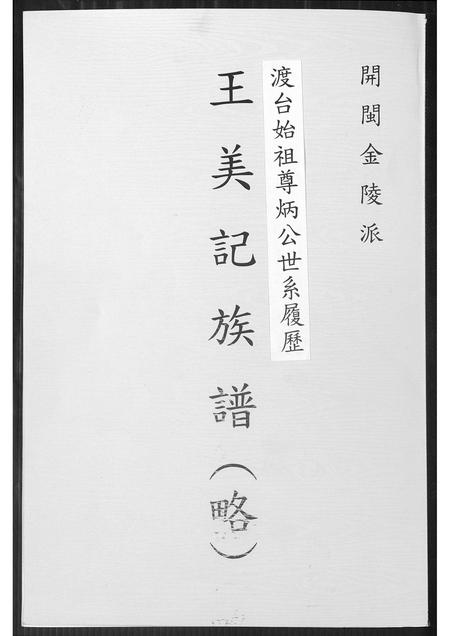 開閩金陵派
渡台始祖尊炳公世系履歷
王美記族譜（略）